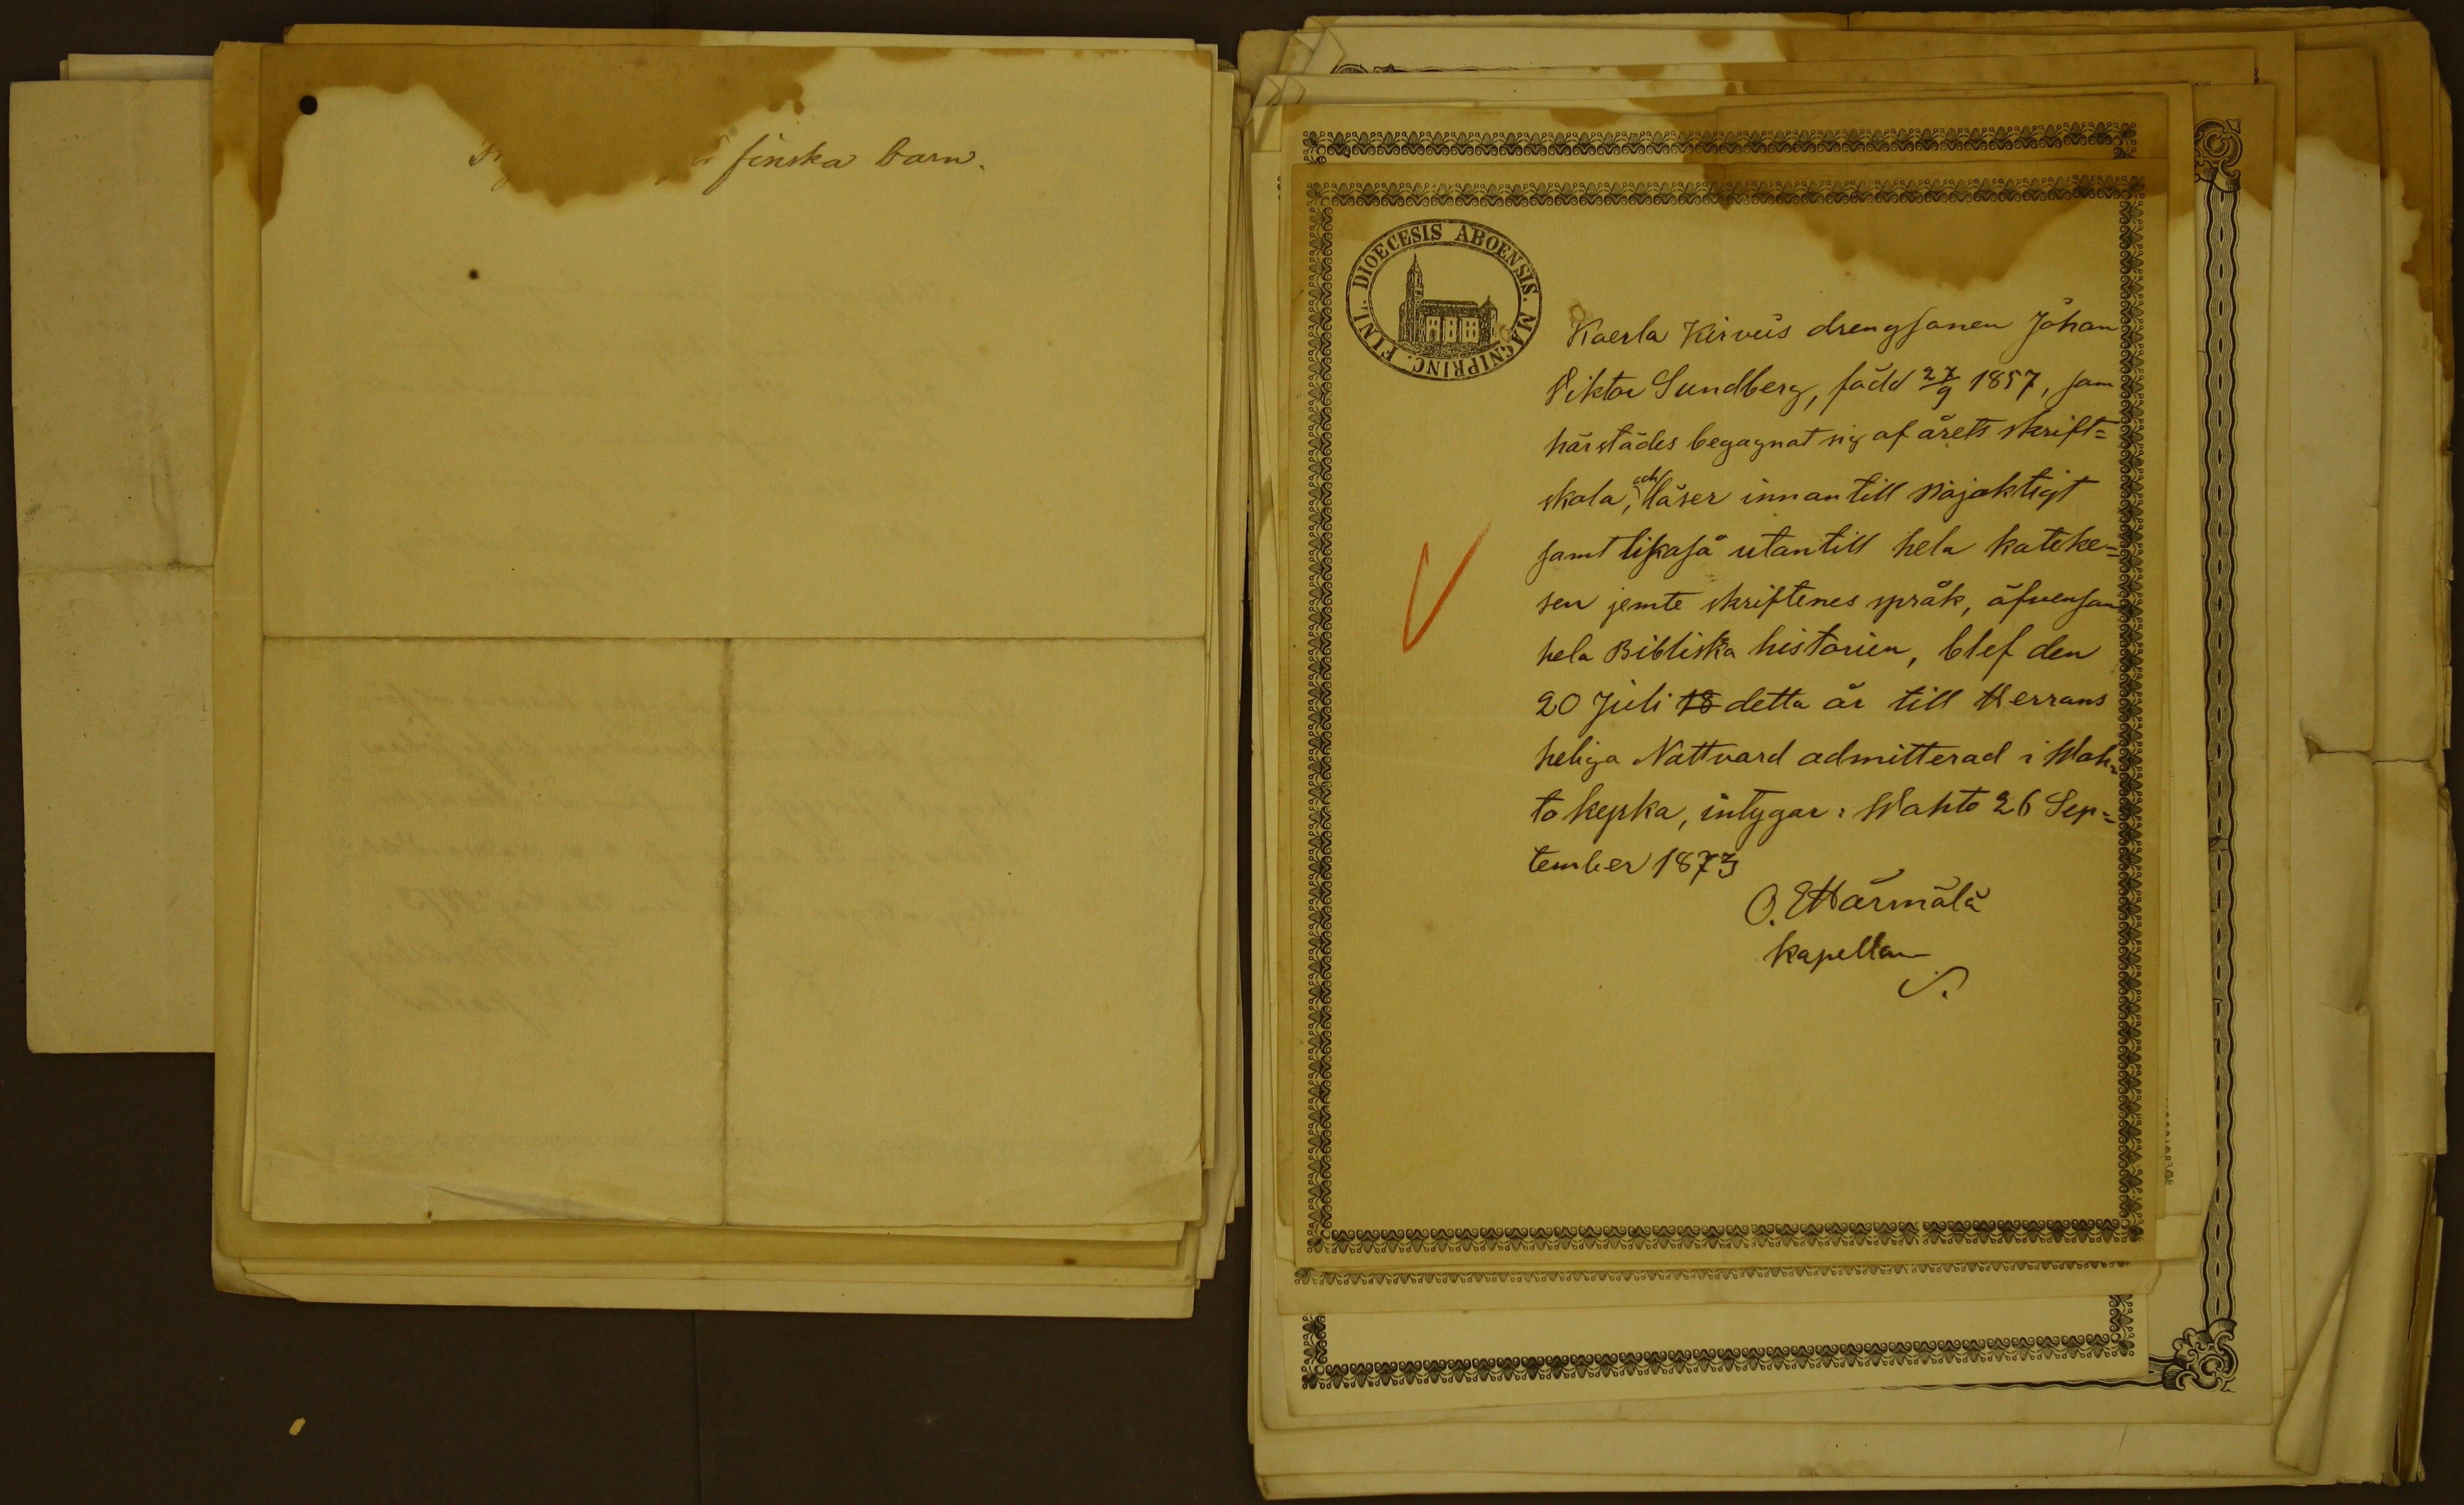 finska barn.
DIOECESIS ABOENSIS. MAGNIPRINC. FINL.
Kaerla Kirveis drengsonen Johan
Viktor Sundberg, född 27/9 1857, som
härstädes begagnat sig af årets skrift=
skola, och läser innantill nöjaktigt
samt likaså utantill hela kateke=
sen jemte skriftenes språk, äfvensom
hela Bibliska historien, blef den
20 Juli 18 detta år till Herrans
heliga Nattvard admitterad i Wah=
to kyrka, intygar: Wahto 26 Sep=
tember 1873
O. E Härmälä
Kapellan